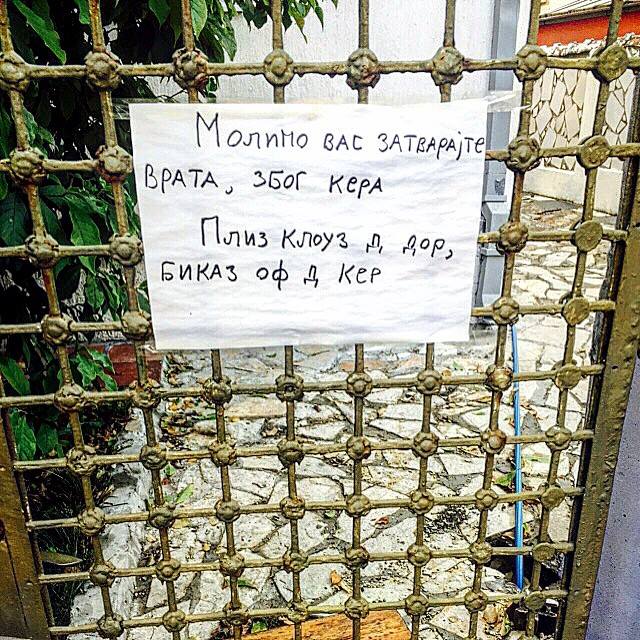 Молимо вас затварајте
врата, због кера
Плиз клоуз д дор,
биказ оф д кер